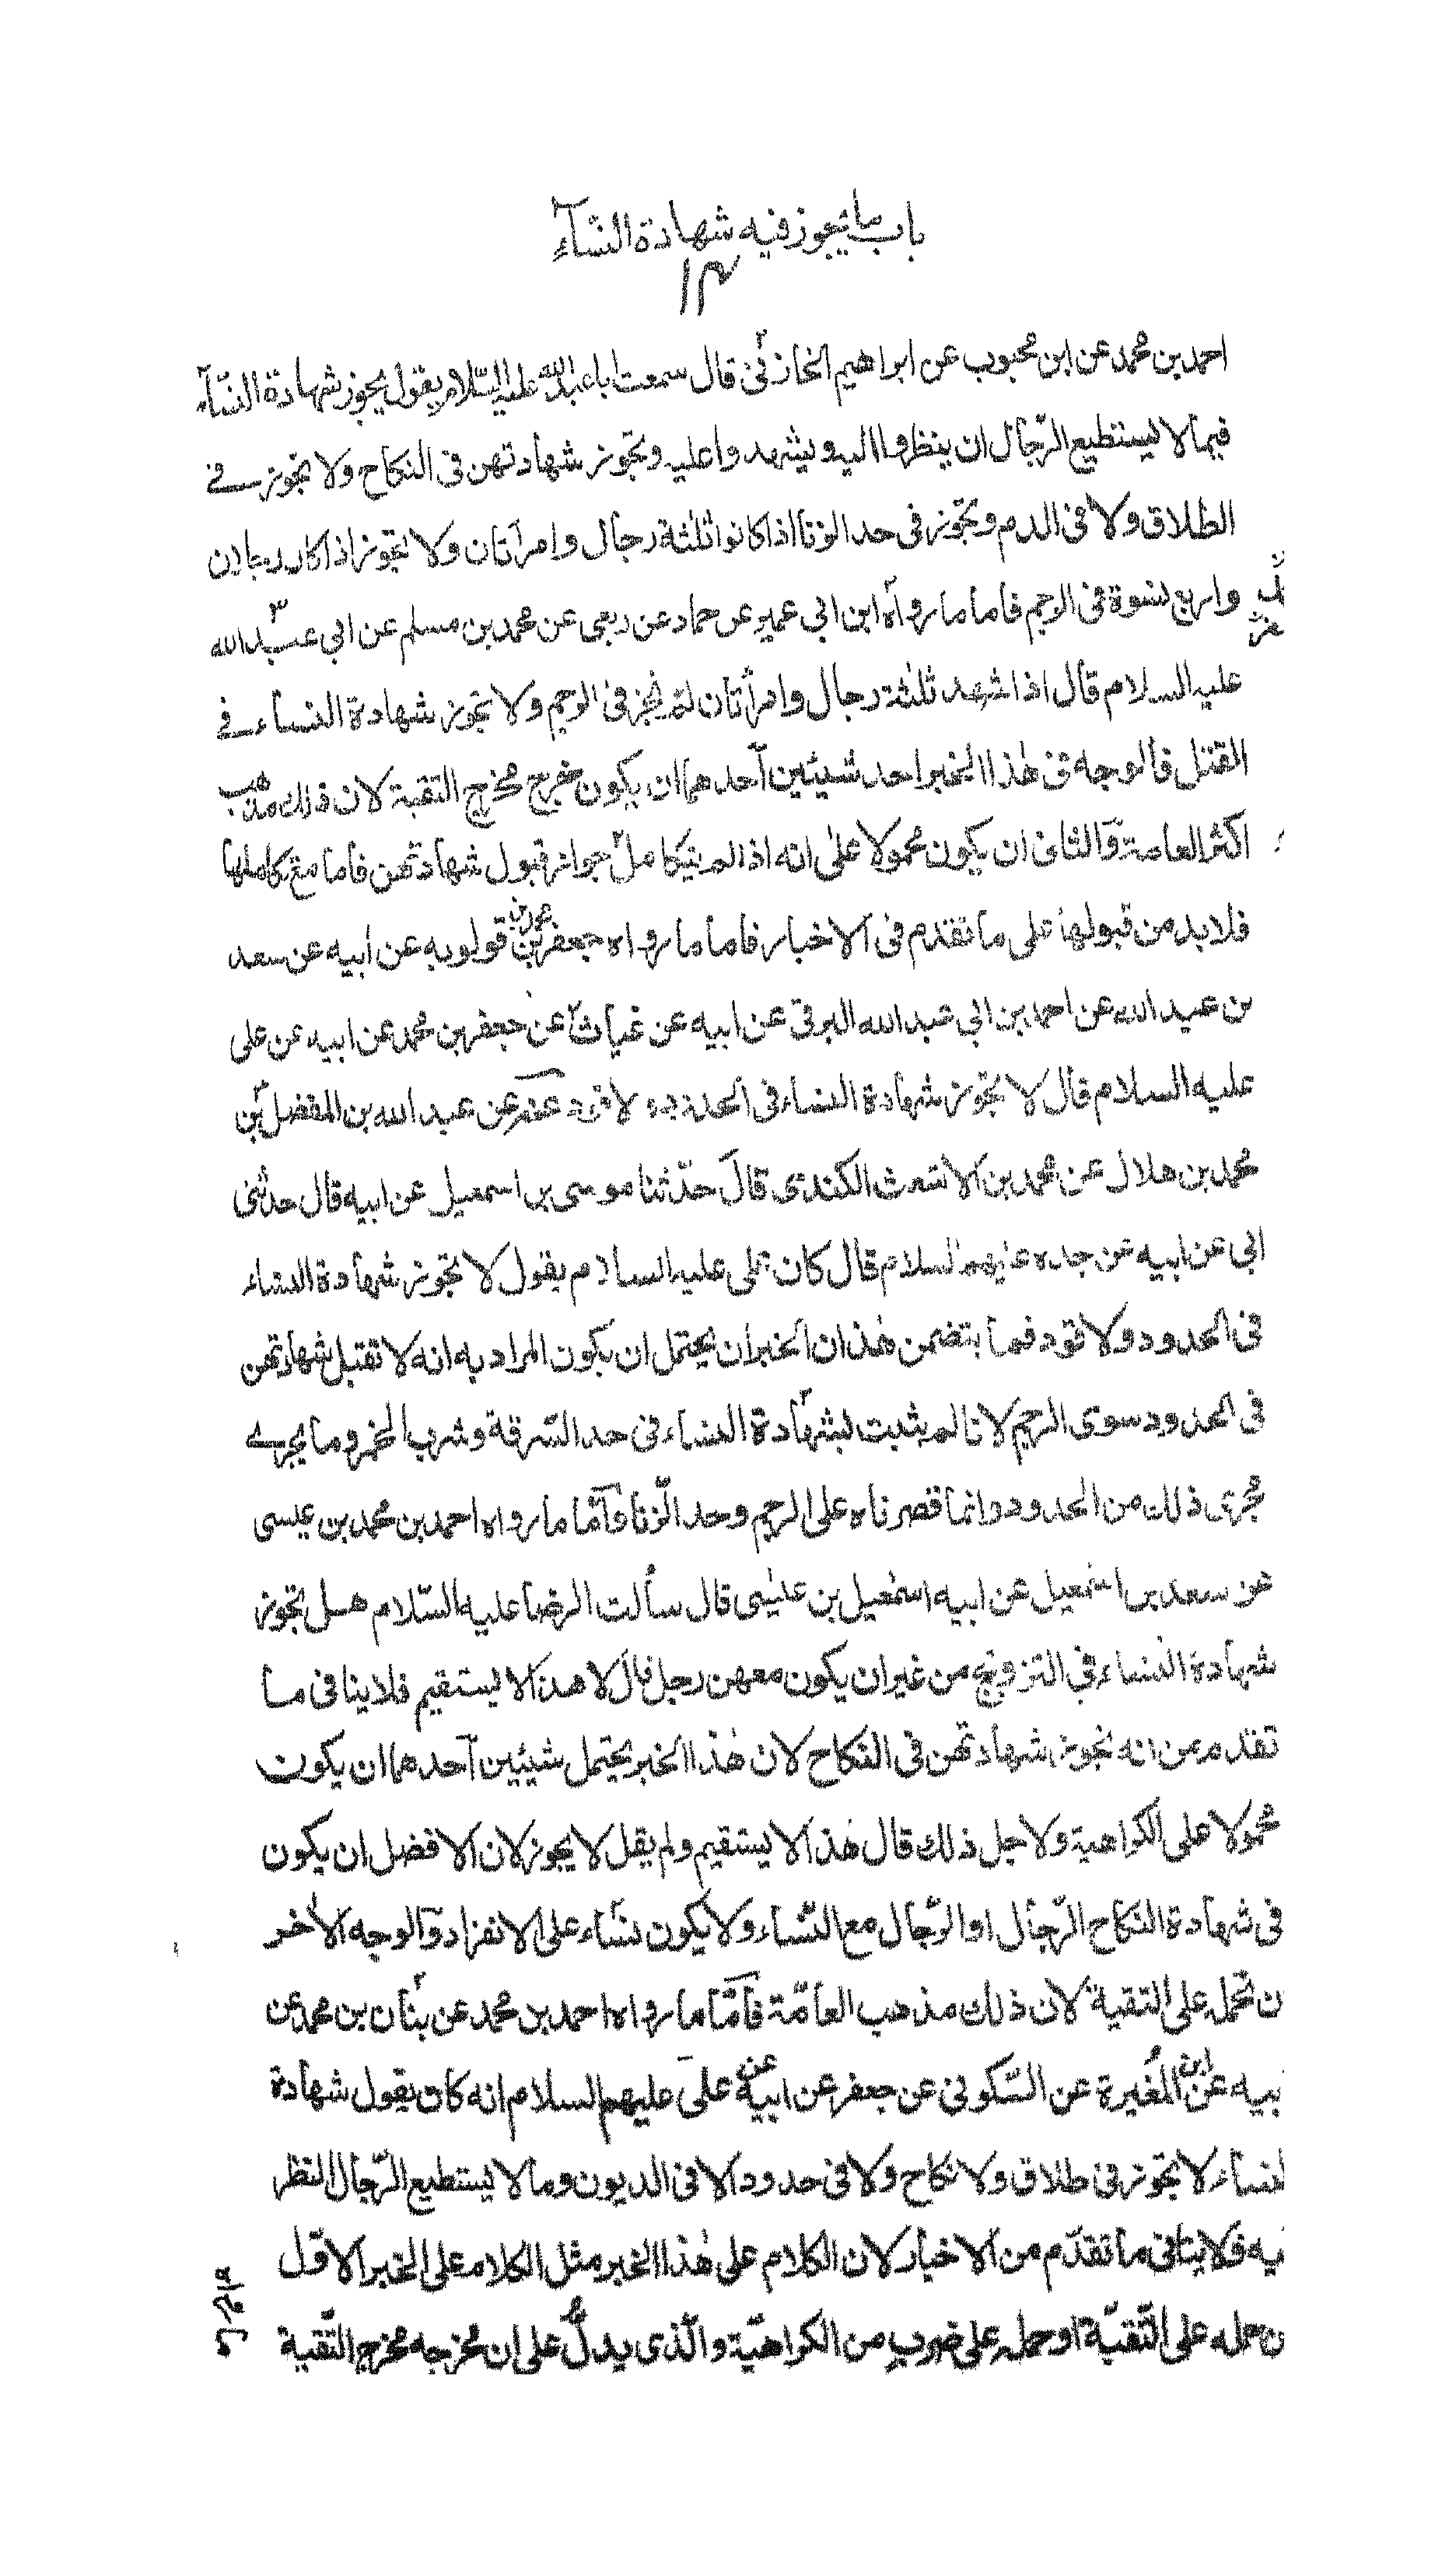 باب ما يجوز فيه شهادة النسآء
١٣
احمد بن محمد عن ابن محبوب عن ابراهيم الخارقى قال سمعت ابا عبد الله عليه السّلام يقول يجوز شهادة النسآء
فيما لا يستطيع الرّجال ان ينظروا اليه ويشهدوا عليه وتجوز شهادتهن فى النكاح ولا تجوز فے
الطلاق ولا فى الدم وتجوز فى حد الزنا اذا كانوا ثلثة رجال وامرأتان ولا تجوز اذا كان رجلان
واربع نسوة فى الرجم فاما ما رواه ابن ابي عمير عن حماد عن ربعى عن محمد بن مسلم عن ابي عبد الله
عليه السلام قال اذا شهد ثلثة رجال وامرأتان لم تجز فى الرجم ولا تجوز شهادة النساء فے
القتل فالوجه فى هذا الخبر احد شيئين آحدهما ان يكون خرج مخرج التقية لان ذلك مذهب
اكثر العامة وَالثانى ان يكون محمولا على انه اذا لم يتكامل جواز قبول شهادتهن فاما مع تكاملها
فلا بد من قبولها على ما تقدم فى الاخبار فاما ما رواه جعفر بن محمد بن قولويه عن ابيه عن سعد
بن عبد الله عن احمد بن ابي عبد الله البرقى عن ابيه عن غياث عن جعفر بن محمد عن ابيه عن على
عليه السلام قال لا تجوز شهادة النساء فى الحدود ولا قود عنه عن عبد الله بن المفضل بن
محمد بن هلال عن محمد بن الاشعث الكندى قال حدّثنا موسى بن اسمعيل عن ابيه قال حدثنى
ابى عن ابيه عن جده عليهم السلام قال كان على عليه السلام يقول لا تجوز شهادة النساء
فى الحدود ولا قود فما يتضمن هذان الخبران يحتمل ان يكون المراد به انه لا تقبل شهادتهن
فى الحدود سوى الرجم لانا لم يثبت بشهادة النساء فى حد السّرقة وشرب الخمر وما يجرے
مجرى ذلك من الحدود وانما قصرناه على الرجم وحد الزّنا فآمّا ما رواه احمد بن محمد بن عيسى
عن سعد بن اسمعيل عن ابيه اسمعيل بن عيسى قال سألت الرضا عليه السّلام هل تجوز
شهادة النساء فى التزويج من غير ان يكون معهن رجل قال لا هذا لا يستقيم فلا ينافى ما
تقدم من انه تجوز شهادتهن فى النكاح لان هذا الخبر يحتمل شيئين آحدهما ان يكون
محمولا على الكراهية ولاجل ذلك قال هذا لا يستقيم ولم يقل لا يجوز لان الافضل ان يكون
فى شهادة النكاح الرّجال او الرّجال مع النّساء ولا يكون نساء على الانفراد وَالوجه الاخر
ن نحمله على التقية لان ذلك مذهب العامّة فآمّا ما رواه احمد بن محمد عن بنان بن محمد عن
بيه عن ابن المغيرة عن السّكونى عن جعفر عن ابيه عن على عليهم السلام انه كان يقول شهادة
لنساء لا تجوز فى طلاق ولا نكاح ولا فى حدود الا فى الديون وما لا يستطيع الرّجال النظر
يه فلا ينافى ما تقدّم من الاخبار لان الكلام على هذا الخبر مثل الكلام على الخبر الاوّل
ن حمله على التّقيّة او حمله على ضرب من الكراهيّة والّذى يدلّ على ان مخرجه مخرج التّقية